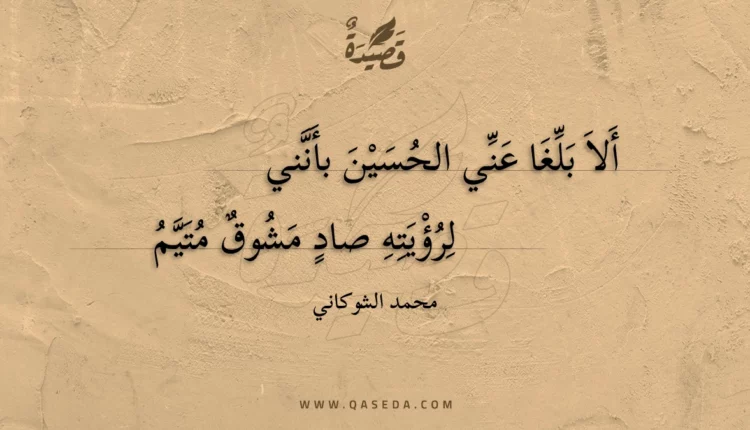 قَصِيْدَةٌ
أَلاَ بَلِّغَا عَنِّي الحُسَيْنَ بأَنَّني
لِرُؤْيَتِهِ صادٍ مَشُوقٌ مُتَيَّمُ
محمد الشوكاني
WWW.QASEDA.COM